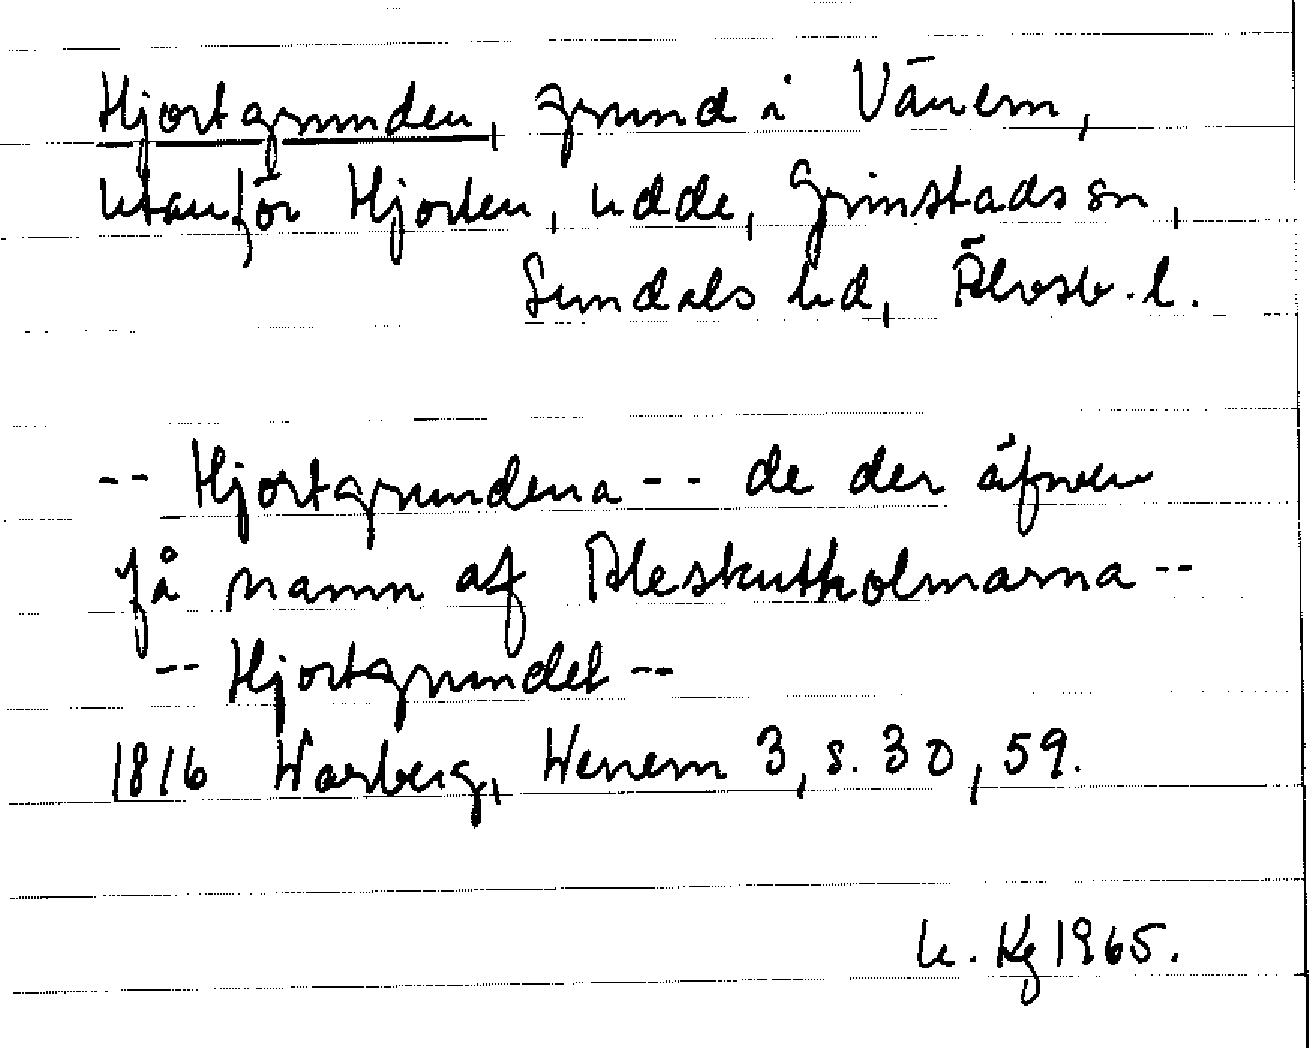 Hjortgrunden, grund i Vänern,
utanför Hjorten, udde, Grinstads sn,
Sundals hd, Älvsb. l.
-- Hjortgrundena -- de der äfven
få namn af Aleskutholmarna --
-- Hjortgrundet --
1816 Warberg, Wenern 3, s. 30, 59.
u. Kg 1965.